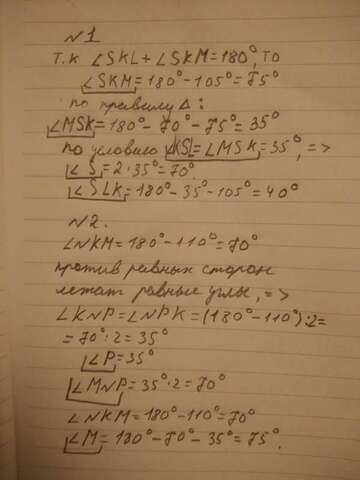 №1
Т.к ∠SKL+∠SKM=180°, то
∠SKM=180°-105°=75°
по правилу △:
∠MSK=180°-70°-75°=35°
по условию ∠KSL=∠MSK=35°, =>
∠S=2·35°=70°
∠SLK=180°-35°-105°=40°
№2.
∠NKM=180°-110°=70°
против равных сторон
лежат равные углы, =>
∠KNP=∠NPK=(180°-110°):2=
=70°:2=35°
∠P=35°
∠MNP=35°·2=70°
∠NKM=180°-110°=70°
∠M=180°-70°-35°=75°.